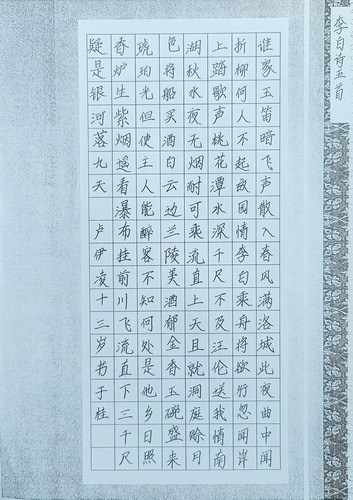 李白诗五首
谁家玉笛暗飞声散入春风满洛城此夜曲中闻
折柳何人不起故园情李白乘舟将欲行忽闻岸
上踏歌声桃花潭水深千尺不及汪伦送我情南
湖秋水夜无烟耐可乘流直上天且就洞庭赊月
色将船买酒白云边兰陵美酒郁金香玉碗盛来
琥珀光但使主人能醉客不知何处是他乡日照
香炉生紫烟遥看瀑布挂前川飞流直下三千尺
疑是银河落九天 卢伊凌十三岁书于桂